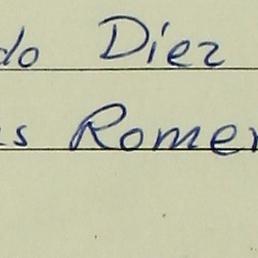 do Díez
as Romer